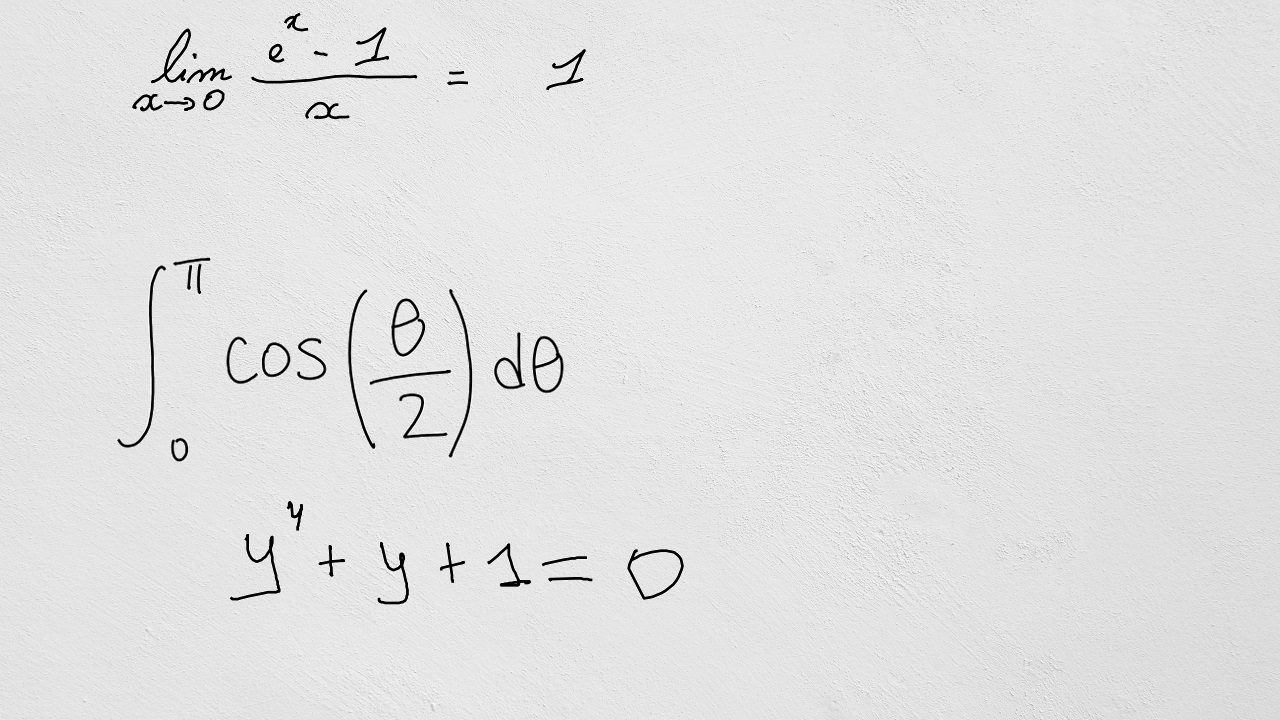 \lim_{x \to 0} \frac{e^x - 1}{x} = 1
\int_0^\pi \cos\left(\frac{\theta}{2}\right) d\theta
y^4 + y + 1 = 0